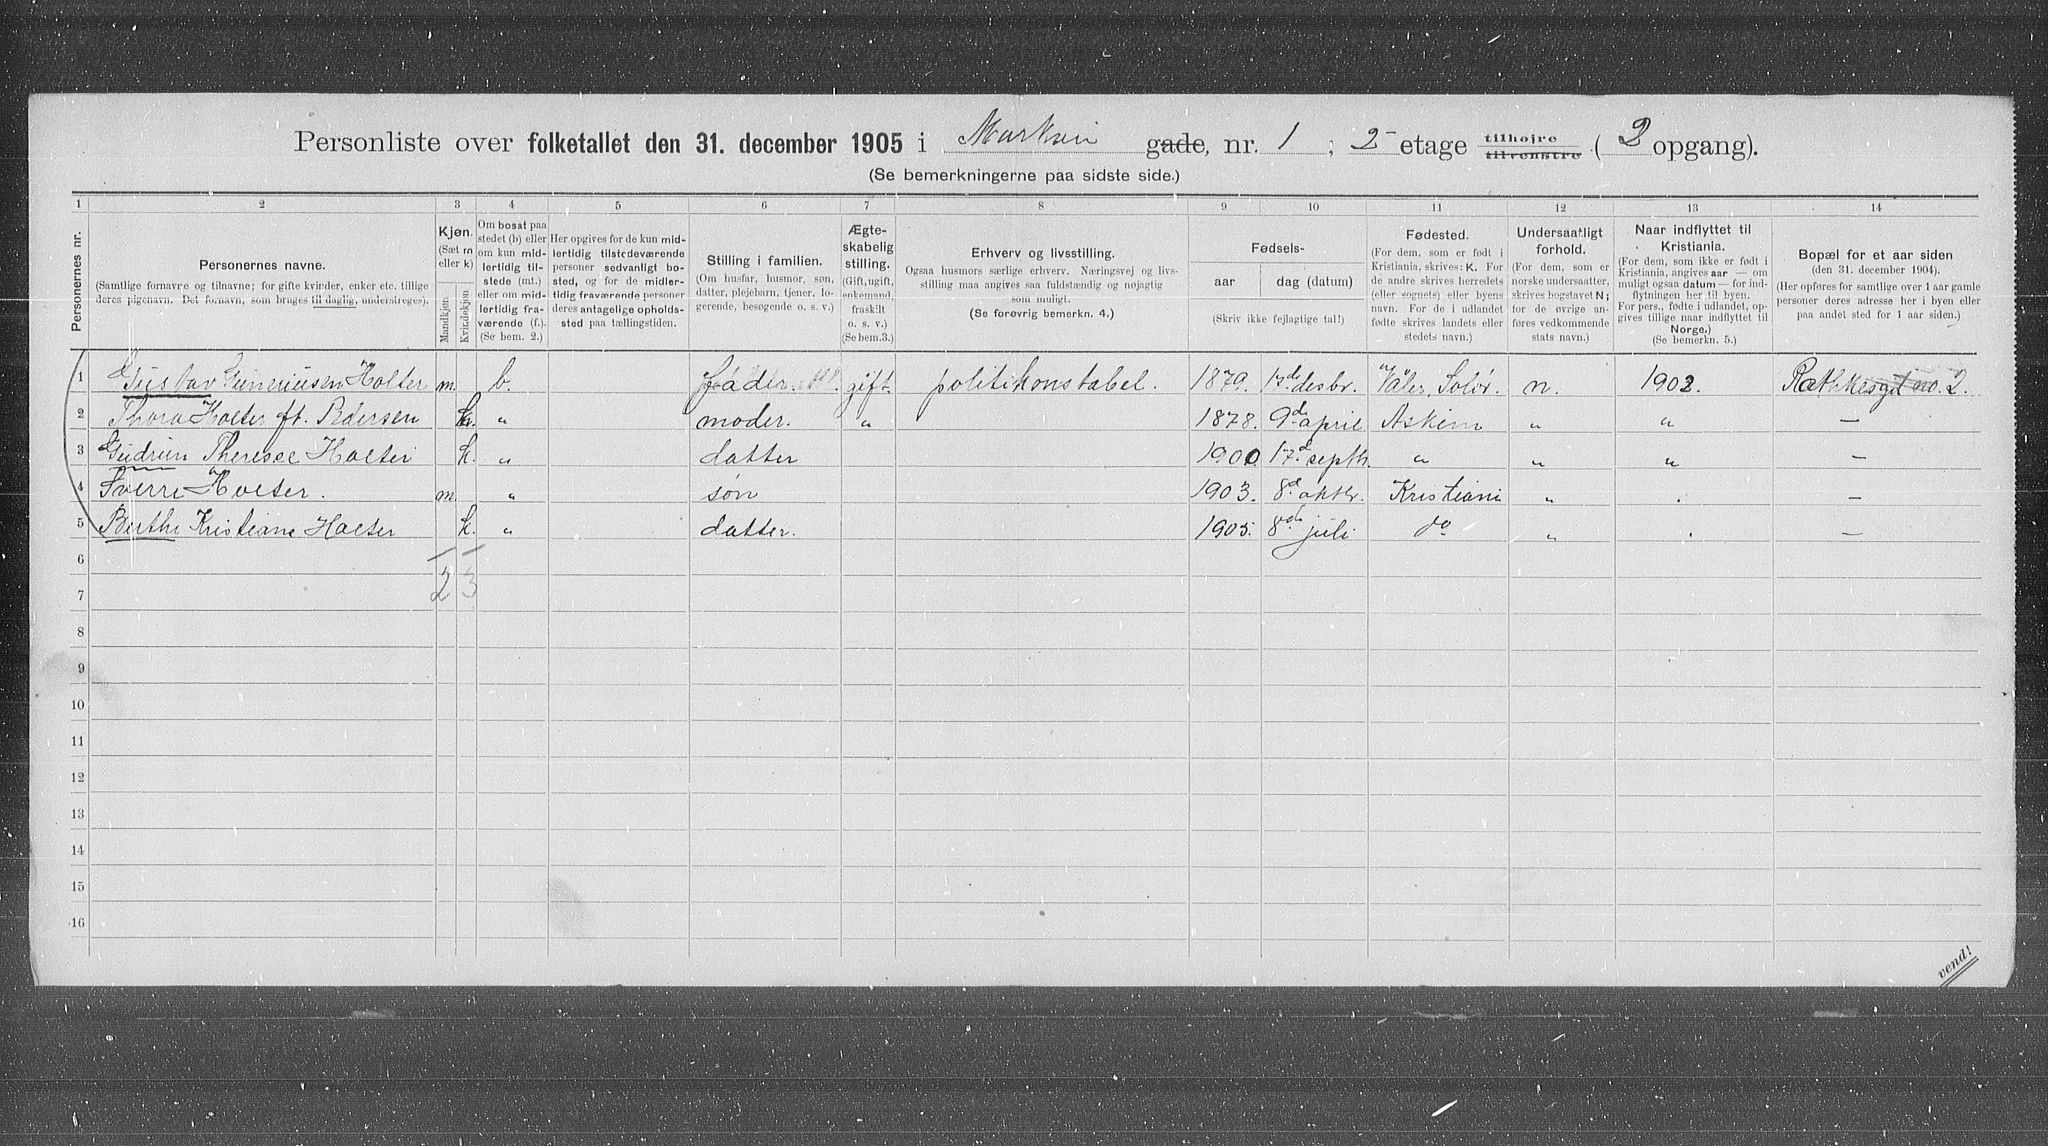 Personliste over folketallet den 31. december 1905 i Markvei gade, nr. 1 ; 2 etage tilhøjre tilvenstre ( 2 opgang).
(Se bemerkningerne paa sidste side.)
1 2 3 4 5 6 7 8 9 10 11 12 13 14
Personernes nr.
Personernes navne.
(Samtlige fornavne og tilnavne; for gifte kvinder, enker etc. tillige deres pigenavn. Det fornavn, som bruges til daglig, understreges).
Kjøn.
(Sæt m eller k)
Mandkjøn. Kvindekjøn
Om bosat paa stedet (b) eller om kun midlertidig tilstede (mt.) eller om midlertidig fraværende (f.). (Se bem. 2.)
Her opgives for de kun midlertidig tilstedeværende personer sedvanligt bosted, og for de midlertidig fraværende personer deres antagelige opholdssted paa tællingstiden.
Stilling i familien.
(Om husfar, husmor, søn, datter, plejebarn, tjener, logerende, besøgende o. s. v.)
Ægteskabelig stilling.
(Gift, ugift, enkemand, fraskilt o. s. v.) (Se bem. 3.)
Erhverv og livsstilling.
Ogsaa husmors særlige erhverv. Næringsvej og livsstilling maa angives saa fuldstændig og nøjagtig som muligt.
(Se forøvrig bemerkn. 4.)
Fødsels-
aar dag (datum)
(Skriv ikke fejlagtige tal!)
Fødested.
(For dem, som er født i Kristiania, skrives: K. For de andre skrives herredets (eller sognets) eller byens navn. For de i udlandet fødte skrives landets eller stedets navn.)
Undersaatligt forhold.
(For dem, som er norske undersaatter, skrives bogstavet N; for de øvrige anføres vedkommende stats navn.)
Naar indflyttet til Kristiania.
(For dem, som ikke er født i Kristiania, angives aar — om muligt ogsaa datum — for indflytningen her til byen. For pers., fødte i udlandet, opgives tillige naar indflyttet til Norge.)
(Se bemerkn. 5.)
Bopæl for et aar siden
(den 31. december 1904).
(Her opføres for samtlige over 1 aar gamle personer deres adresse her i byen eller paa andet sted for 1 aar siden.)
1 Gustav Guneriusen Holter m. b. fader gift politikonstabel. 1879. 17de desbr. Våler, Solør. n. 1902. Rathkesgt no. 2.
2 Thora Holter ft. Pedersen k. " moder. " 1878. 9de april Askim " " —
3 Gudrun Therese Holter k. " datter 1900. 17d septbr. " " " —
4 Sverre Holter. m. " søn 1903. 8d oktbr. Kristiani " . —
5 Berthe Kristiane Holter k. " datter. 1905. 8de juli do " . —
6
2 3
7
8
9
10
11
12
13
14
15
16
vend!